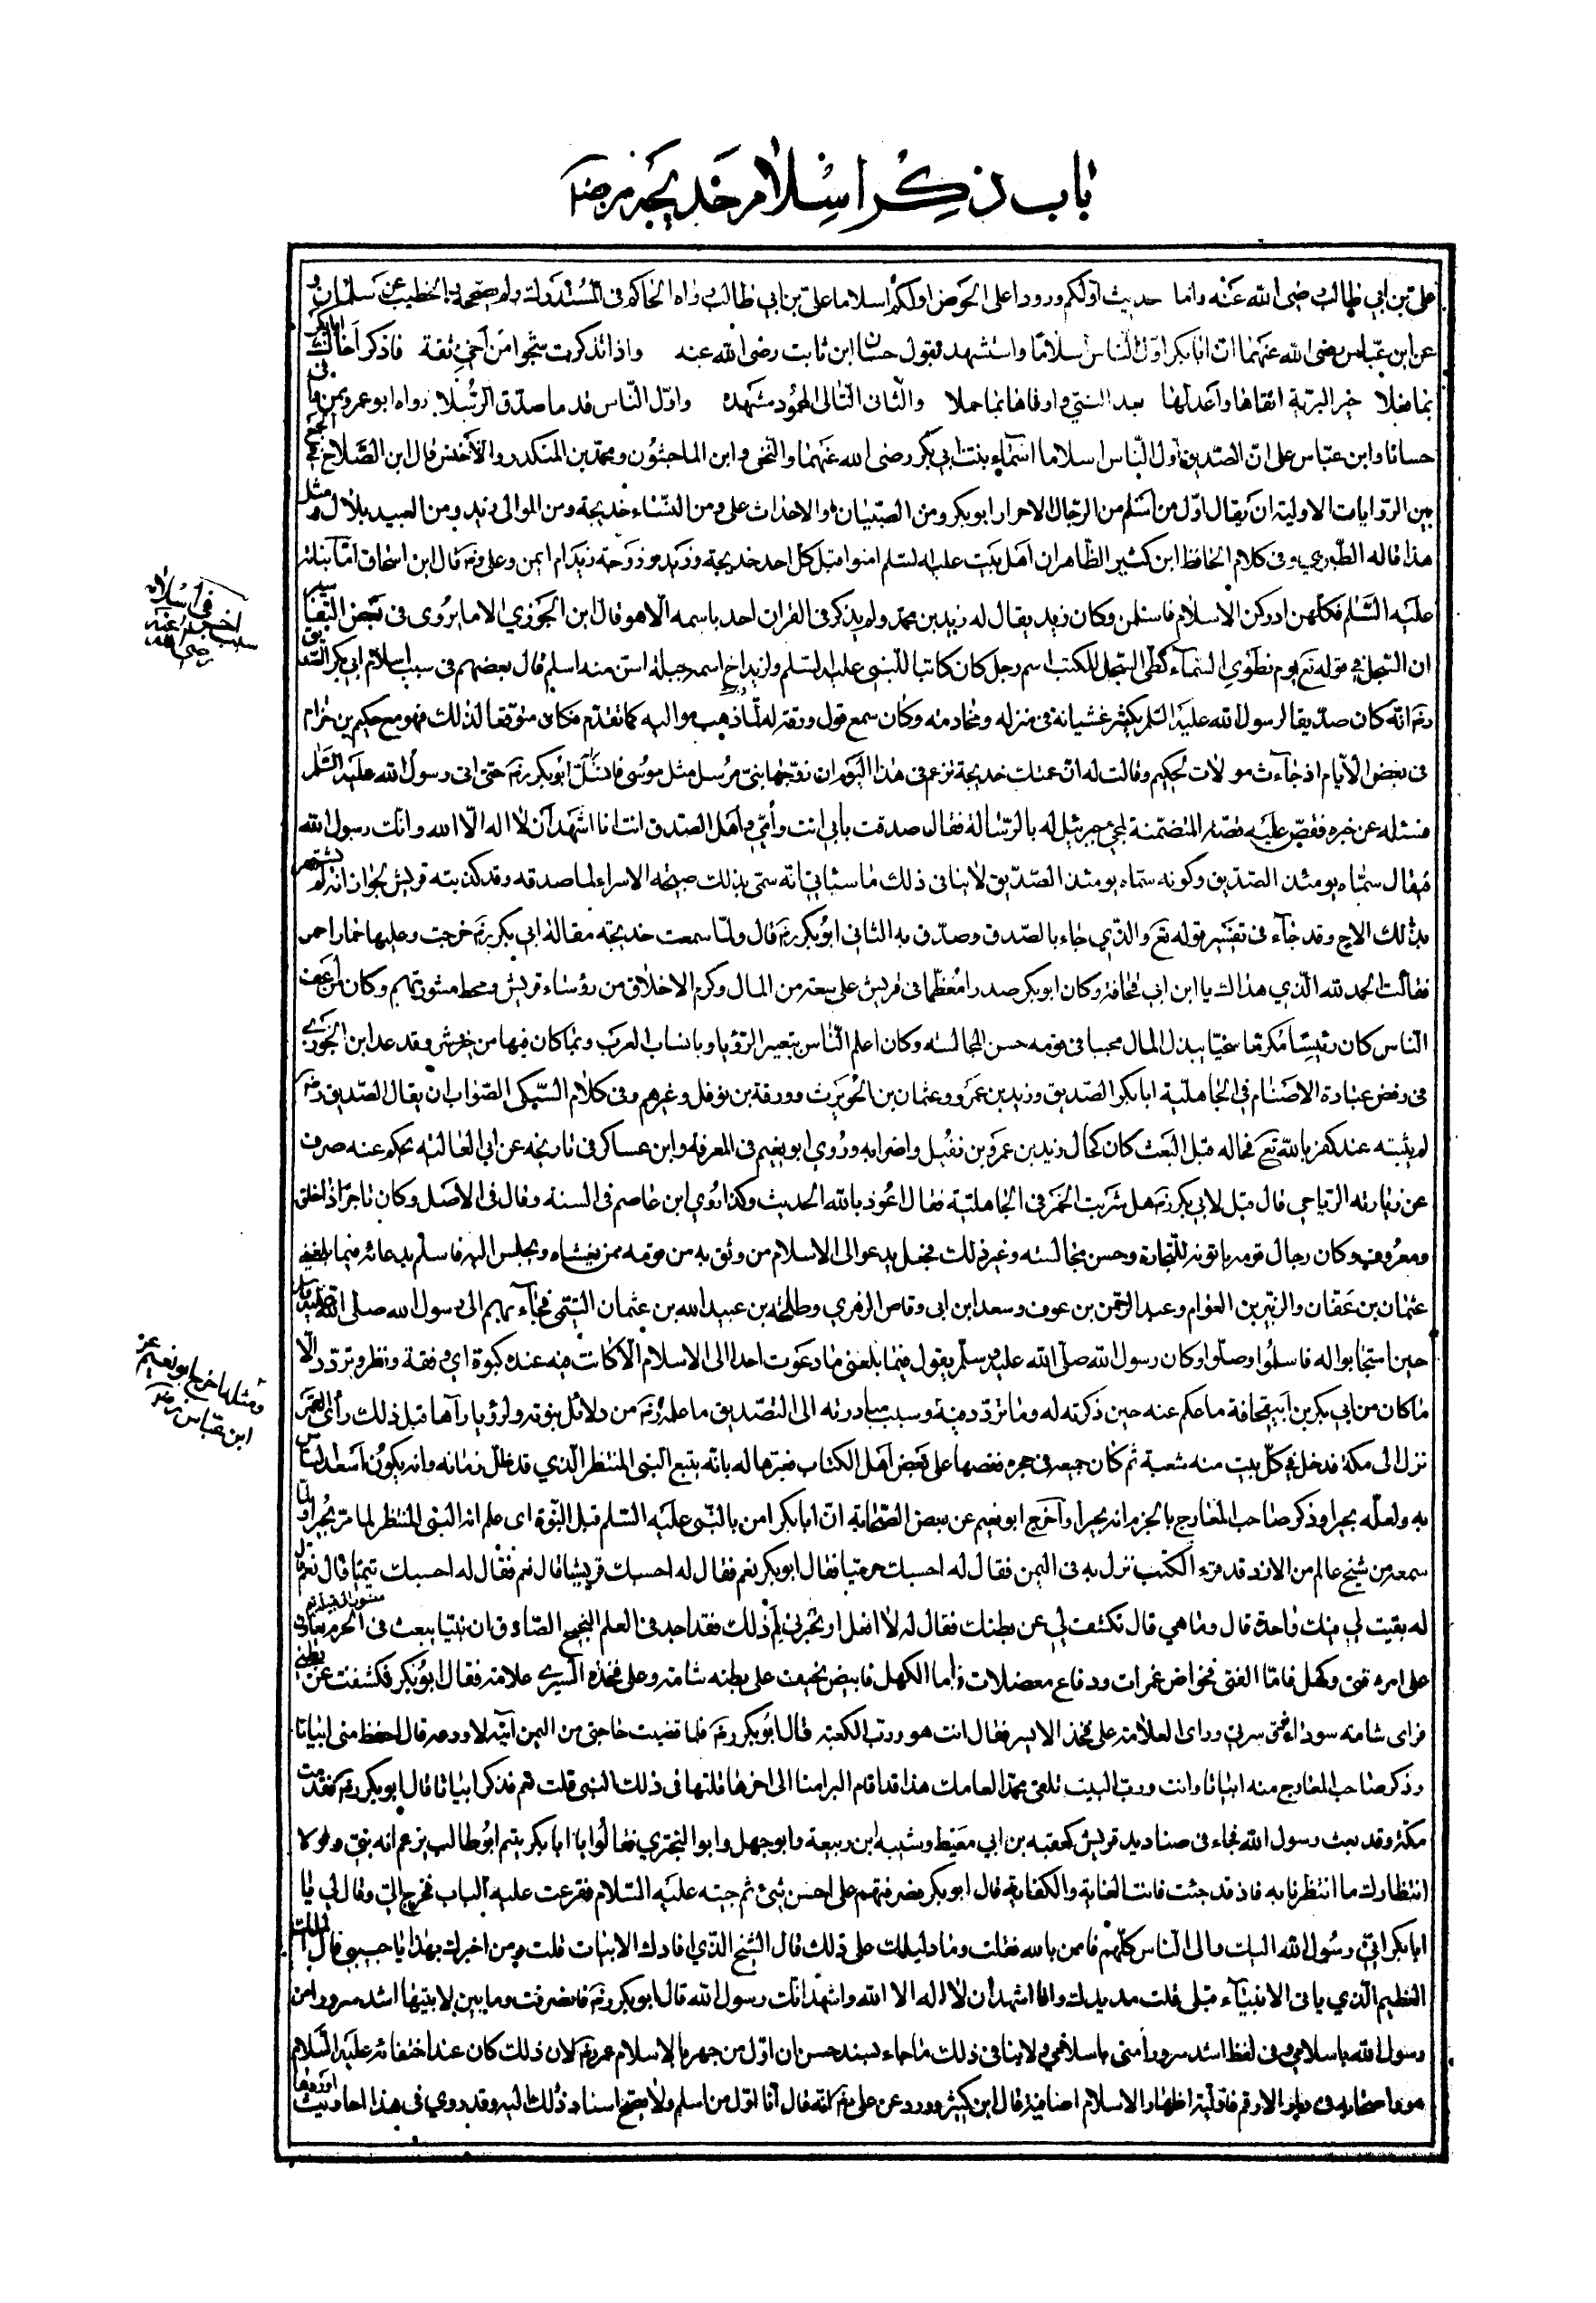 باب ذكر اسلام خديجة رضي
علي بن ابي طالب رضي الله عنه واما حديث اولكم ورودا على الحوض اولكم اسلاما علي بن ابي طالب رواه الحاكم في المستدرك ولم يصححه والخطيب عن سلمان و
عن ابن عباس رضي الله عنهما ان ابا بكر اول الناس اسلاما واستشهد بقول حسان ابن ثابت رضي الله عنه واذا تذكرت شجوا من أخي ثقة فاذكر اخاك ابا بكر
بما فعلا خير البرية اتقاها واعدلها بعد النبي واوفاها بما حملا والثاني التالي المحمود مشهده واول الناس قدما صدق الرسلا رواه ابو عمر وممن وافق
حسانا وابن عباس على ان الصديق اول الناس اسلاما اسماء بنت ابي بكر رضي الله عنهما والنخعي وابن الماجشون ومحمد بن المنكدر والاخنس قال ابن الصلاح الجمع
بين الروايات الاولية ان يقال اول من اسلم من الرجال الاحرار ابو بكر ومن الصبيان والاحداث علي ومن النساء خديجة ومن الموالي زيد ومن العبيد بلال ومثل
هذا قاله الطبري وفي كلام الحافظ ابن كثير الظاهر ان اهل بيته عليه السلم امنوا قبل كل احد خديجة وزيد وزوجة زيد ام ايمن وعلي رضم قال ابن اسحاق اما بناته
عليه السلم فكلهن ادركن الاسلام فاسلمن وكان زيد يقال له زيد بن محمد ولم يذكر في القران احد باسمه الا هو قال ابن الجوزي الا ما يروى في بعض التفاسير
ان السجل في قوله تع يوم نطوي السماء كطي السجل للكتب اسم رجل كان كاتبا للنبي عليه السلم ولزيد اخ اسمه جبلة اسن منه اسلم قال بعضهم في سبب اسلام ابي بكر الصديق
رضم انه كان صديقا لرسول الله عليه السلم يكثر غشيانه في منزله ومحادثه وكان سمع قول ورقة له لما ذهب مواليه كما تقدم فكان متوقعا لذلك فهو مع حكيم بن حزام
في بعض الايام اذ جاءت مولات لحكيم وقالت له ان عمتك خديجة تزعم في هذا اليوم ان زوجها نبي مرسل مثل موسى فانسل ابو بكر رضم حتى اتى رسول الله عليه السلم
فسئله عن خبره فقص عليه قصته المتضمنة لمجئ جبرئيل له بالرسالة فقال صدقت بأبي انت وأمي واهل الصدق انت انا اشهد أن لا اله الا الله وانك رسول الله
فيقال سماه يومئذ الصديق وكونه سماه يومئذ الصديق لا ينافي ذلك ما سيأتي انه سمي بذلك صبيحة الاسراء لما صدقه وقد كذبته قريش لجواز انه لم يشتهر
بذلك الا ح وقد جاء في تفسير قوله تع والذي جاء بالصدق وصدق به الثاني ابو بكر رضم قال ولما سمعت خديجة مقالة ابي بكر رضم خرجت وعليها خمار احمر
فقالت الحمد لله الذي هداك يا ابن ابي قحافة وكان ابو بكر صدرا معظما في قريش على سعة من المال وكرم الاخلاق من رؤساء قريش ومحط مشورتهم وكان من اعف
الناس كان رئيسا مكرما سخيا يبذل المال محببا في قومه حسن المجالسة وكان اعلم الناس بتعبير الرؤيا وبانساب العرب وبما كان فيها من خير وشر وقد عد ابن الجوزي
في رفض عبادة الاصنام في الجاهلية ابا بكر الصديق وزيد بن عمرو وعثمان بن الحويرث وورقة بن نوفل وغيرهم وفي كلام السبكي الصواب ان يقال الصديق رضم
لم يثبته عند كفر بالله تع فحاله قبل البعث كان كحال زيد بن عمرو بن نفيل واضرابه وروي ابو نعيم في المعرفة وابن عساكر في تاريخه عن ابي العالية
الرياحي قال قيل لابي بكر رضم هل شربت الخمر في الجاهلية فقال اعوذ بالله الحديث وكذا روي ابن عاصم في السنة وقال في الاصل وكان تاجرا ذا خلق
ومعروف وكان رجال قومه ياتونه للتجارة وحسن مجالسته وغير ذلك فجعل يدعو الى الاسلام من وثق به من قومه ممن يغشاه ويجلس اليه فاسلم بدعائه فيما بلغني
عثمان بن عفان والزبير بن العوام وعبد الرحمن بن عوف وسعد ابن ابي وقاص الزهري وطلحة بن عبيد الله بن عثمان التيمي فجاء بهم الى رسول الله صلى الله عليه وسلم
حين استجابوا له فاسلموا وصلوا وكان رسول الله صلى الله عليه وسلم يقول فيما بلغني ما دعوت احدا الى الاسلام الا كانت منه عنده كبوة اي وقفة ونظر وتردد الا
ما كان من ابي بكر بن ابي قحافة ما عكم عنه حين ذكرته له وما تردد فيه وسبب مبادرته الى التصديق ما علمه رضم من دلائل نبوته ولرؤيا رآها قبل ذلك رأى القمر
نزل الى مكة فدخل في كل بيت منه شعبة ثم كان جميعه في حجره فقصها على بعض اهل الكتاب فعبرها له بانه يتبع النبي المنتظر الذي قد ظل زمانه وانه يكون اسعد الناس
به ولعله بحيرا وذكر صاحب المعارج بالجزم انه بحيرا وأخرج ابو نعيم عن بعض الصحابة ان ابا بكر امن بالنبي عليه السلم قبل النبوة اى علم انه النبي المنتظر لما مر ببحيرا ولما
سمعه من شيخ عالم من الازد قد قرء الكتب نزل به في اليمن فقال له احسبك حرميا فقال ابو بكر نعم فقال له احسبك قريشيا قال نعم فقال له احسبك تيميا قال نعم قال
له بقيت لي منك واحدة قال وما هي قال تكشف لي عن بطنك فقال له لا افعل او تخبرني لم ذلك فقد اجد في العلم النجيح الصادق ان نبيا يبعث في الحرم يعاون
على امره فتى وكهل فاما الفتى فخواض غمرات ودفاع معضلات واما الكهل فابيض نحيف على بطنه شامة وعلى فخذه اليسرى علامة فقال ابو بكر فكشفت عن بطني
فراى شامة سوداء فوق سرتي وراى العلامة على فخذ الايسر فقال انت هو ورب الكعبة قال ابو بكر رضم فلما قضيت حاجتي من اليمن اتيته لاودعه قال احفظ مني ابياتا
وذكر صاحب المعارج منه ابياتا وانت ورب البيت تلقى محمدا لعامك هذا قد اقام البرامنا الى اخرها قلتها في ذلك النبي قلت نعم فذكر ابياتا قال ابو بكر رضم فقدمت
مكة وقد بعث رسول الله فجاءني صناديد قريش كعقبة بن ابي معيط وشيبه ابن ربيعة وابو جهل وابو البختري فقالوا يا ابا بكر يتيم ابو طالب يزعم انه نبي ولولا
انتظارك ما انتظرنا به فاذ قد جئت فانت الغاية والكفاية قال ابو بكر فصرفتهم على احسن شئ ثم جئته عليه السلام فقرعت عليه الباب فخرج الي وقال لي يا
ابا بكر اني رسول الله اليك والى الناس كلهم فامن بالله فقلت وما دليلك على ذلك قال الشيخ الذي افادك الابيات قلت ومن اخبرك بهذا يا حبيبي قال الملك
العظيم الذي ياتي الانبياء قبلي قلت مد يدك وانا اشهد أن لا اله الا الله واشهد انك رسول الله قال ابو بكر رضم فانصرفت وما بين لابتيها اشد سرورا من
رسول الله باسلامي وفي لفظ اشد سرورا مني باسلامي ولا ينافي ذلك ما جاء بسند حسن ان اول من جهر بالاسلام عمر رضم لان ذلك كان عند اختفائه عليه السلام
هو واصحابه في دار الارقم فاولية اظهار الاسلام اضافية قال ابن كثير وورد عن علي رضم انه قال انا اول من اسلم ولا يصح اسناد ذلك اليه وقد روي في هذا احاديث اوردها
اخر في اسلام سبب عنه رضي الله
ومثله اخرج ابو نعيم عن
ابن عباس رضم